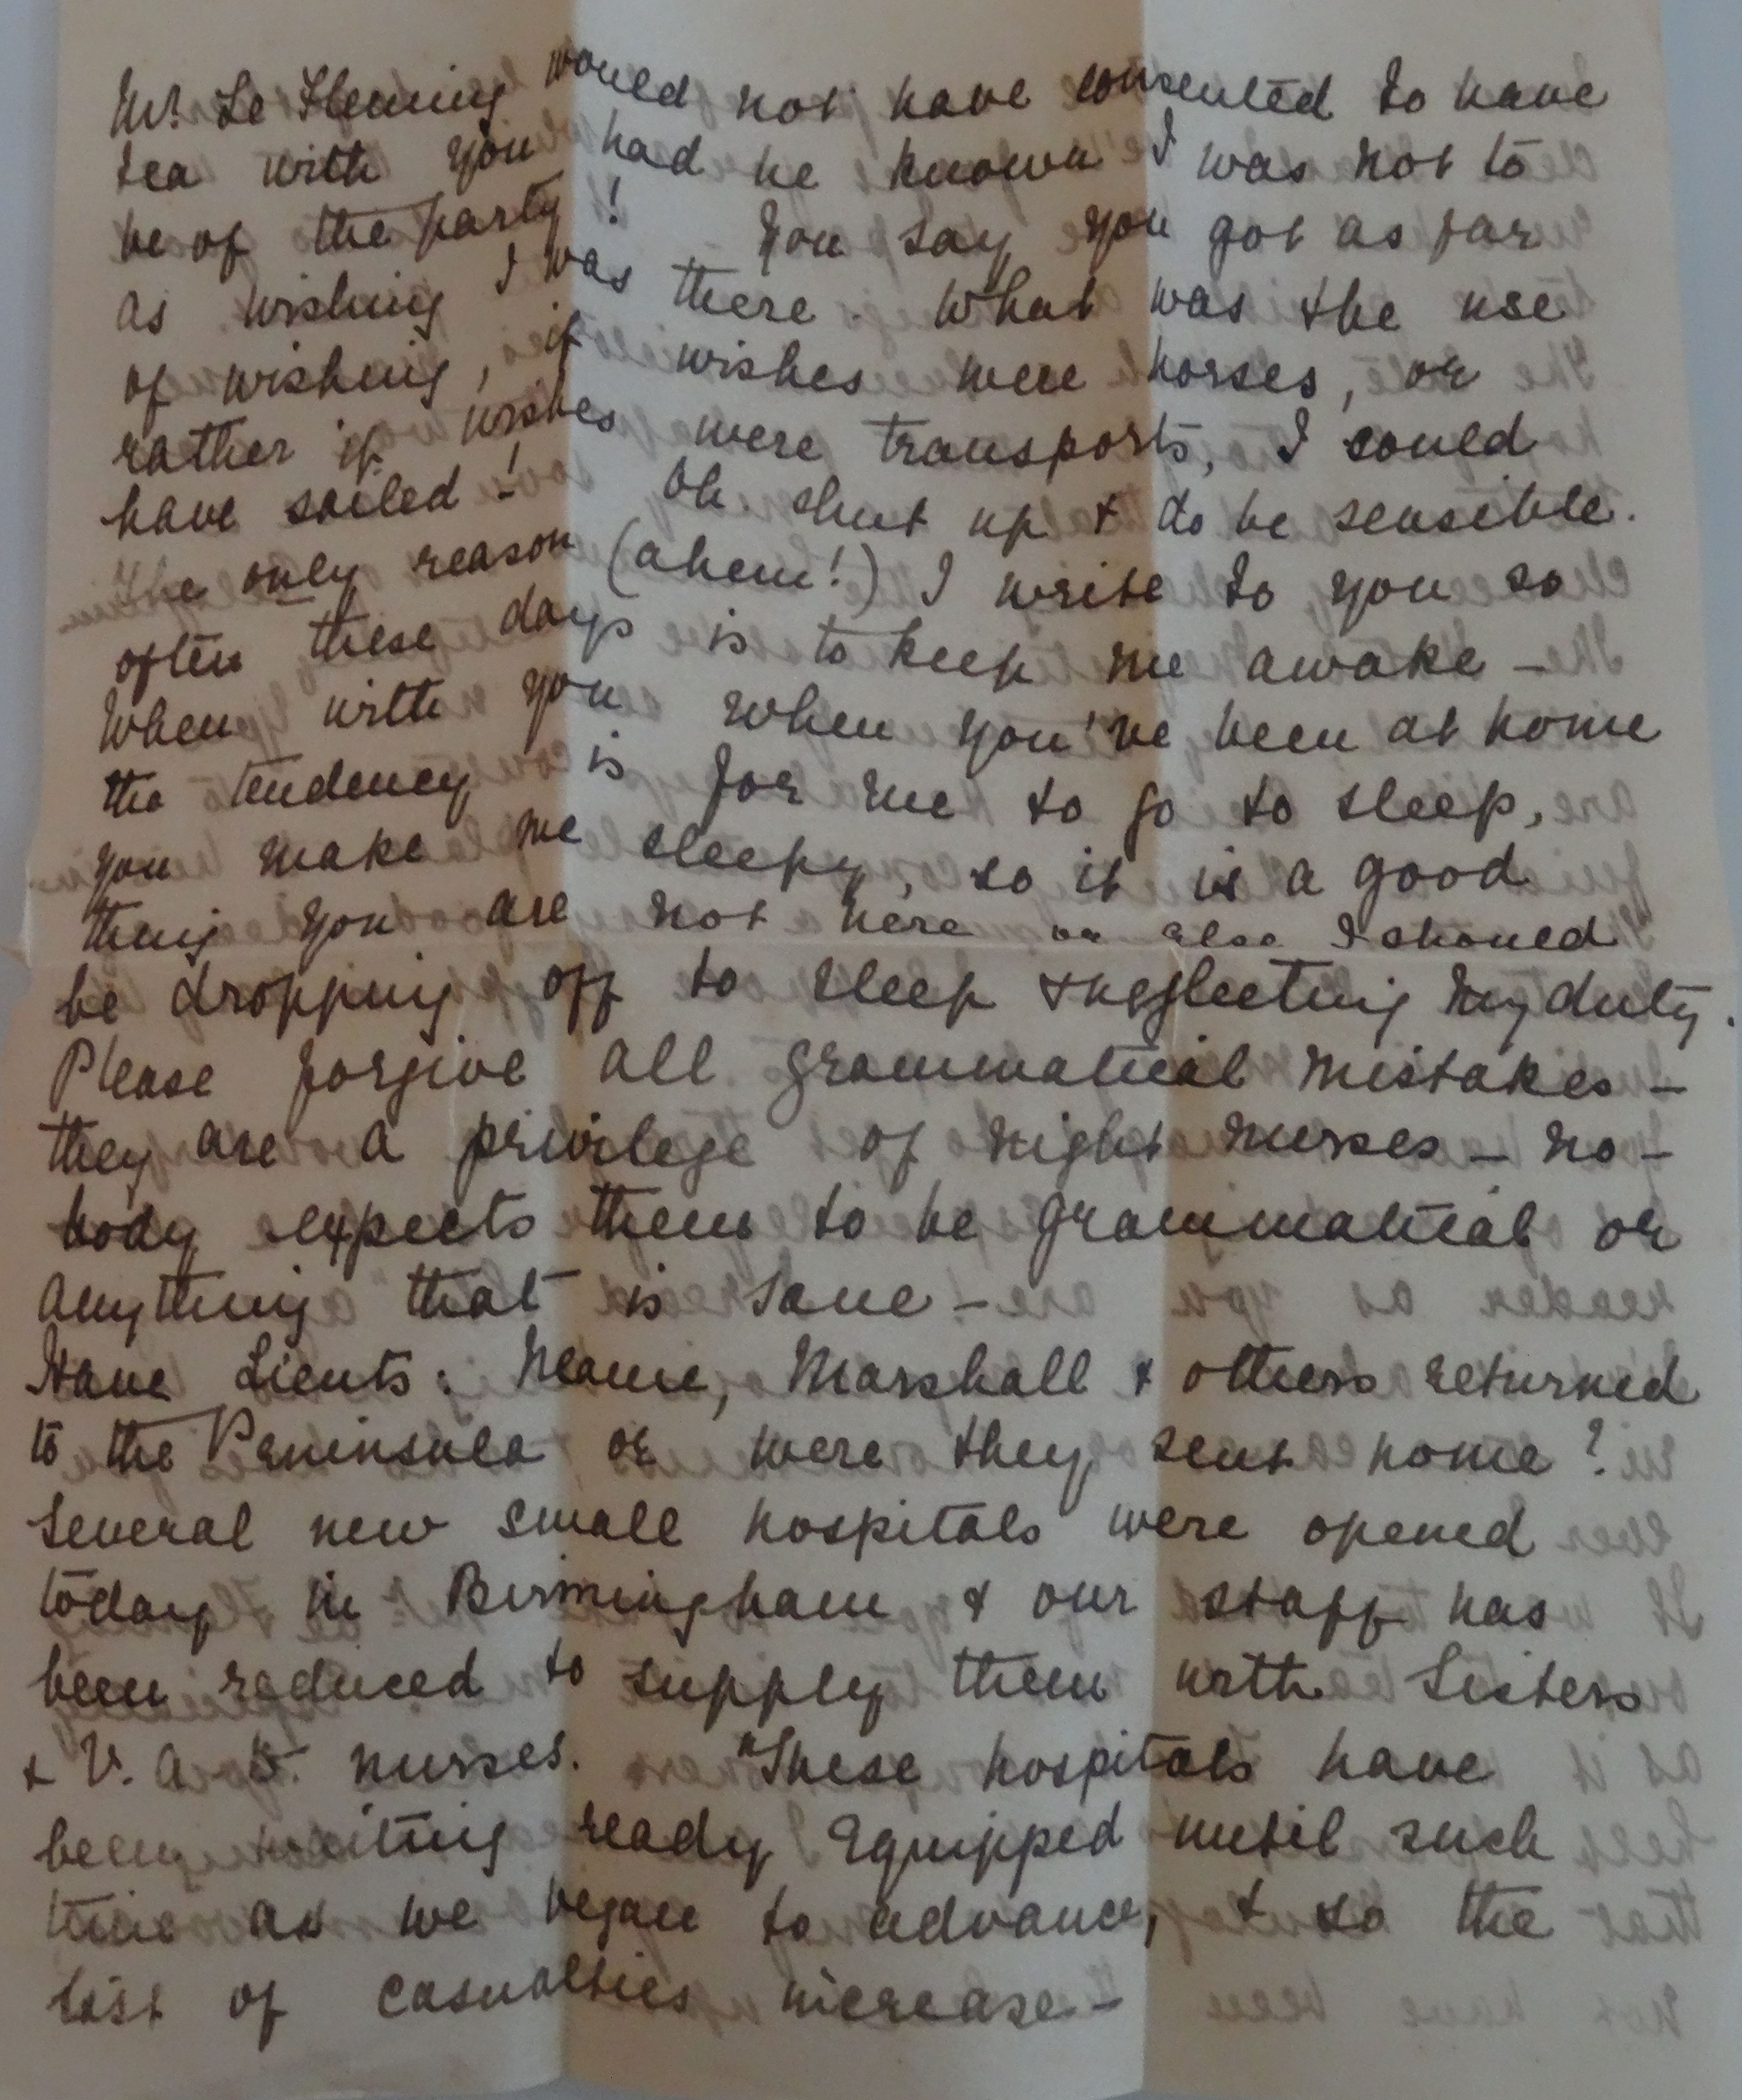 Mr. Le Fleming would not have consented to have
tea with you had he known I was not to
be of the party! You say you got as far
as wishing I was there. What was the use
of wishing, if wishes were horses, or
rather if wishes were transports, I could
have sailed! Oh shut up & do be sensible.
The only reason (ahem!) I write to you so
often these days is to keep me awake –
When with you when you've been at home
the tendency is for me to go to sleep,
you make me sleepy, so it is a good
thing you are not here or else I should
be dropping off to sleep & neglecting my duty.
Please forgive all grammatical mistakes –
they are a privilege of night nurses – no-
body expects them to be grammatical or
anything that is sane –
Have Lieuts: Neame, Marshall & others returned
to the Peninsula or were they sent home?
Several new small hospitals were opened
today in Birmingham & our staff has
been reduced to supply them with Sisters
& V. A. D. nurses. These hospitals have
been waiting ready equipped until such
time as we began to advance, & so the
list of casualties increase –